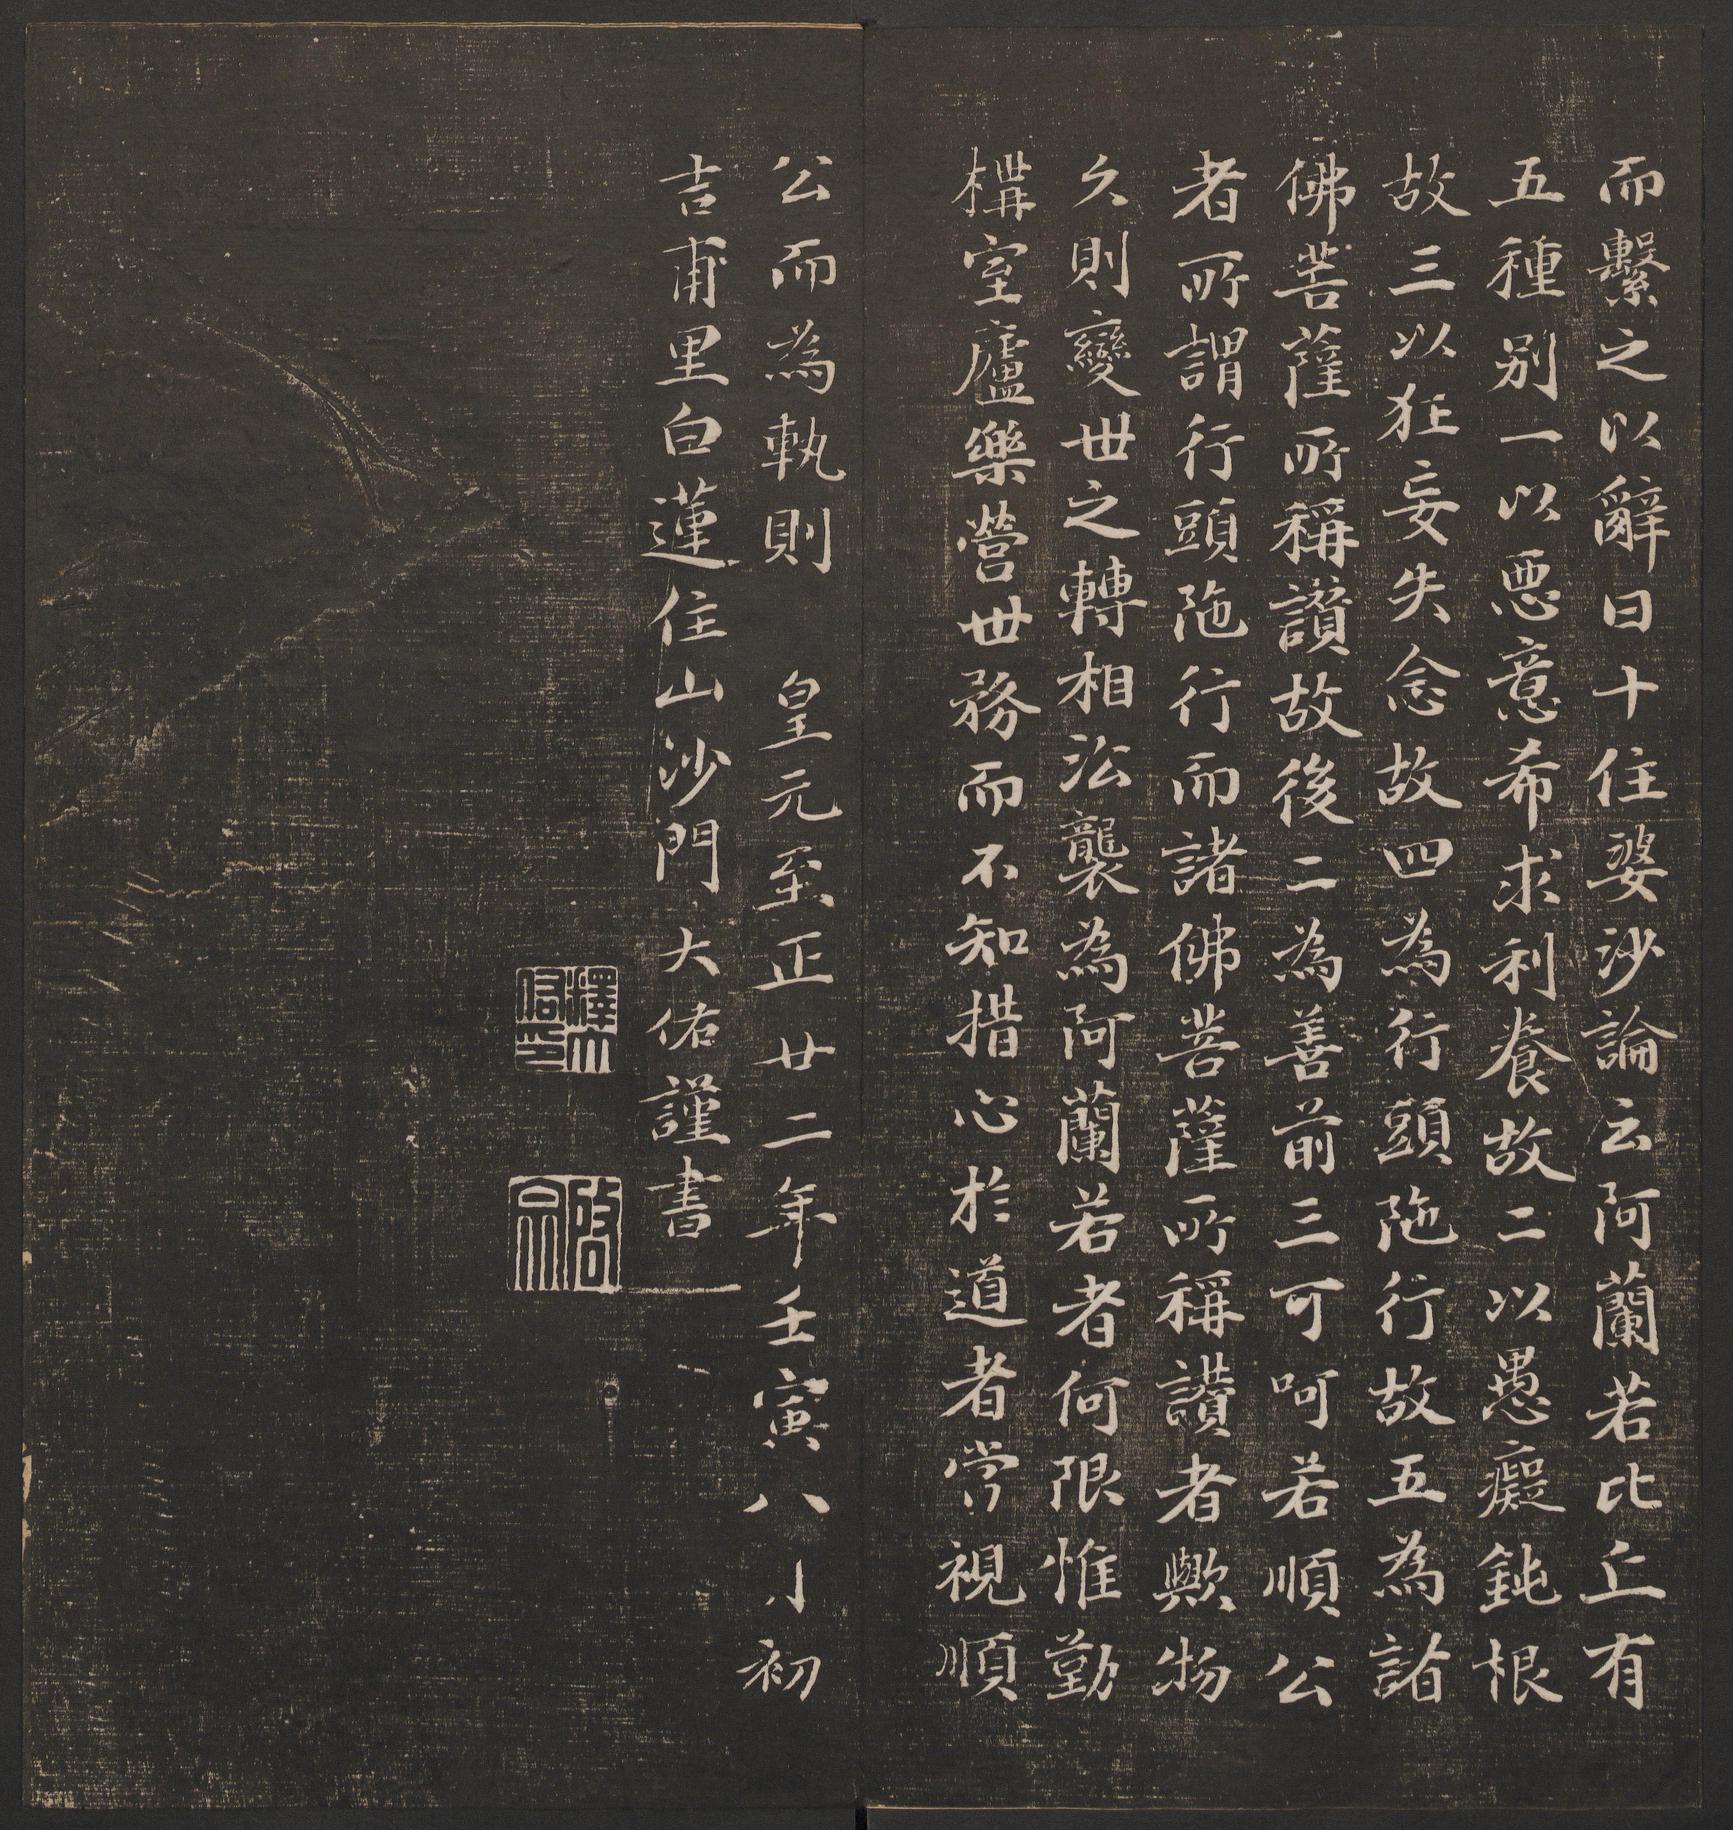 而繫之以辭曰十住婆沙論云阿蘭若比丘有
五種別一以惡意希求利養故二以愚癡鈍根
故三以狂妄失念故四為行頭陁行故五為諸
佛菩薩所稱讚故後二為善前三可呵若順公
者所謂行頭陁行而諸佛菩薩所稱讚者歟物
久則變世之轉相沿襲為阿蘭若者何限惟勤
構室廬樂營世務而不知措心於道者當視順
公而為軌則 皇元至正廿二年壬寅八月初
吉甫里白蓮住山沙門大佑謹書
釋大佑印
啟宗